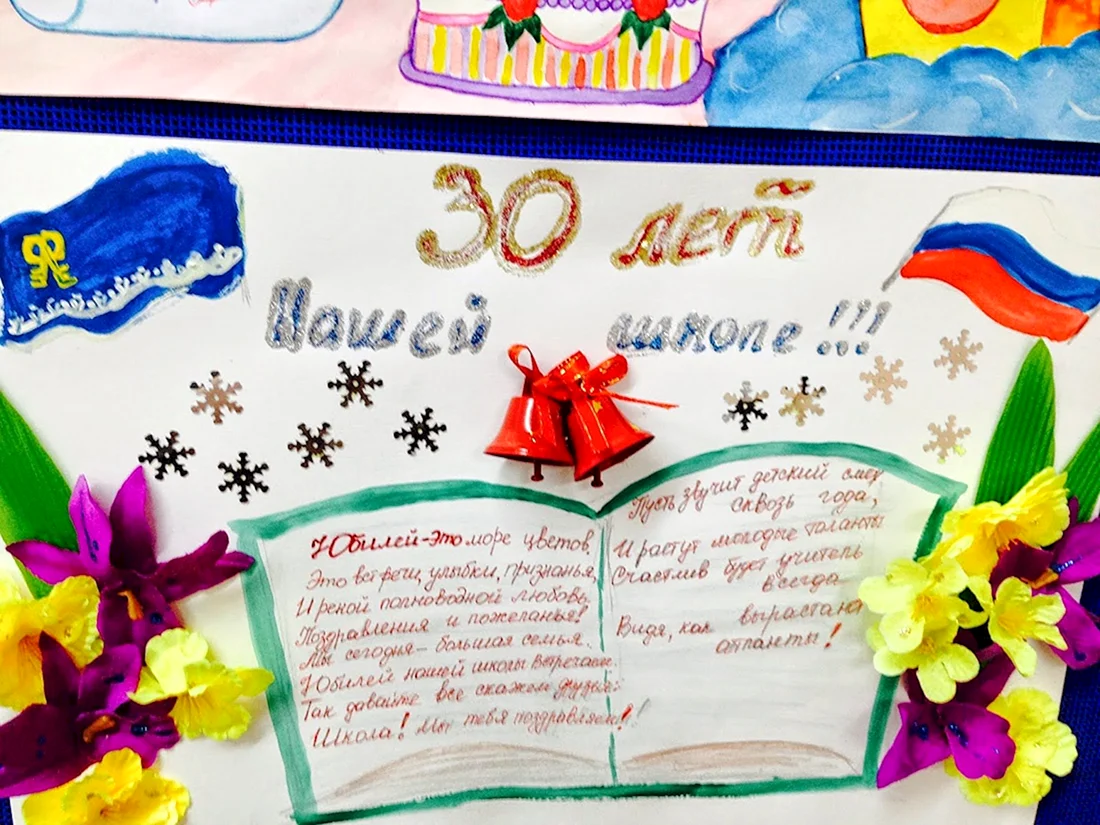 30 лет
Нашей школе!!!
Юбилей-это море цветов,
Это встречи, улыбки, признанья,
И рекой полноводной любовь,
Поздравления и пожеланья!
Мы сегодня - большая семья.
Юбилей нашей школы встречаем.
Так давайте все скажем друзья:
Школа! Мы тебя поздравляем!!!
Пусть звучит детский смех
сквозь года,
И растут молодые таланты
Счастлив будет учитель
всегда
Видя, как вырастают
атланты!